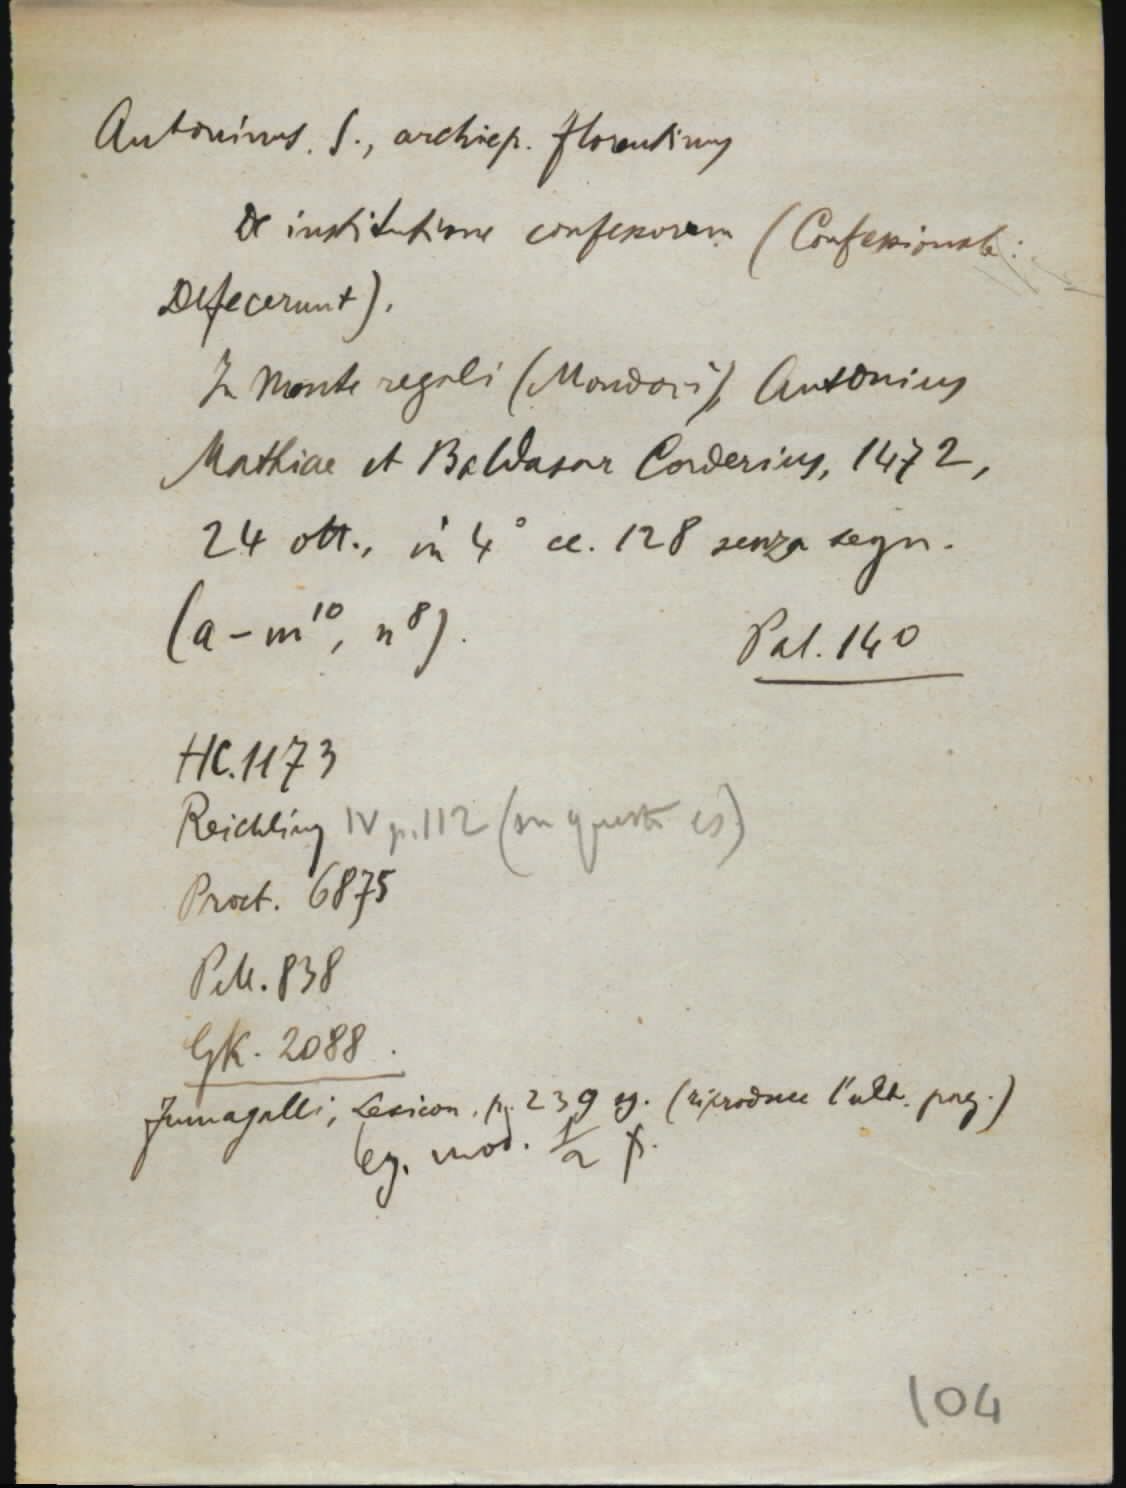 Antoninus. S., archiep. florentinus
De institutione confessorum (Confessionale:
Defecerunt).
In Monte regali (Mondovì), Antonius
Mathiae et Baldasar Corderius, 1472,
24 ott., in 4° cc. 128 senza segn.
(a-m¹⁰, n⁸).
Pal. 140
HC. 1173
Reichling IV p. 112 (su questo es)
Proct. 6875
Pell. 838
GK. 2088.
Fumagalli, Lexicon, p. 239 sg. (riproduce l'ult. pag.)
leg. mod. ½ p.
104